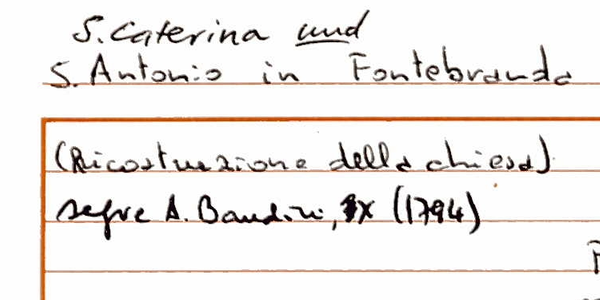 S. Caterina und
S. Antonio in Fontebranda
(Ricostruzione della chiesa)
segue A. Bandini, IX (1794)